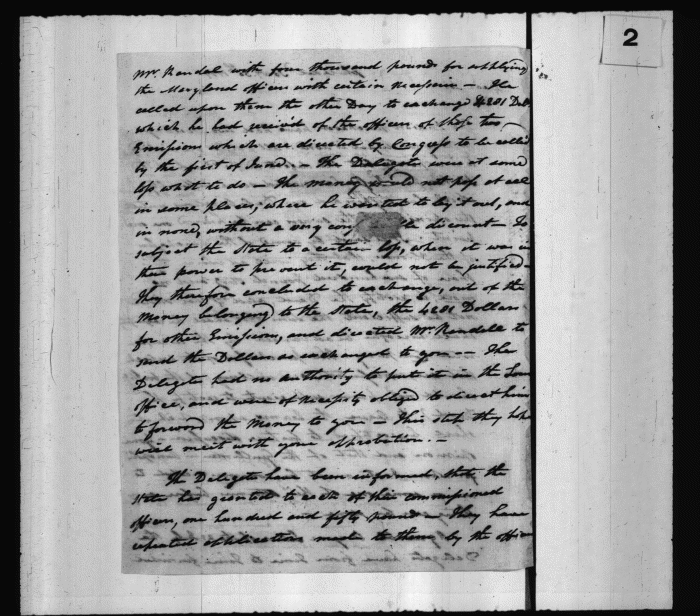 2
Mr. Randal with four thousand pounds for supplying
the Maryland officers with certain necessaries — He
called upon them the other Day to exchange 4201 Doll
which he had received of the officers of those two
Emissions which are directed by Congress to be called
by the first of June. — The Delegates were at some
loss what to do — The money would not pass at all
in some places, where he wanted to lay it out, and
in none, without a very con ble discount — To
subject the State to a certain loss, when it was in
their power to prevent it, could not be justified —
They therefore concluded to exchange, out of the
Money belonging to the State, the 4201 Dollars
for other Emissions, and directed Mr. Randall to
send the Dollars so exchanged to you — The
Delegates had no Authority to put it in the Loan
office, and were of necessity obliged to direct him
to forward the Money to you — This step they hope
will meet with your approbation. —
The Delegates have been informed, that the
State has granted to each of their commissioned
officers, one hundred and fifty pounds — They have
repeated applications made to them by the officers